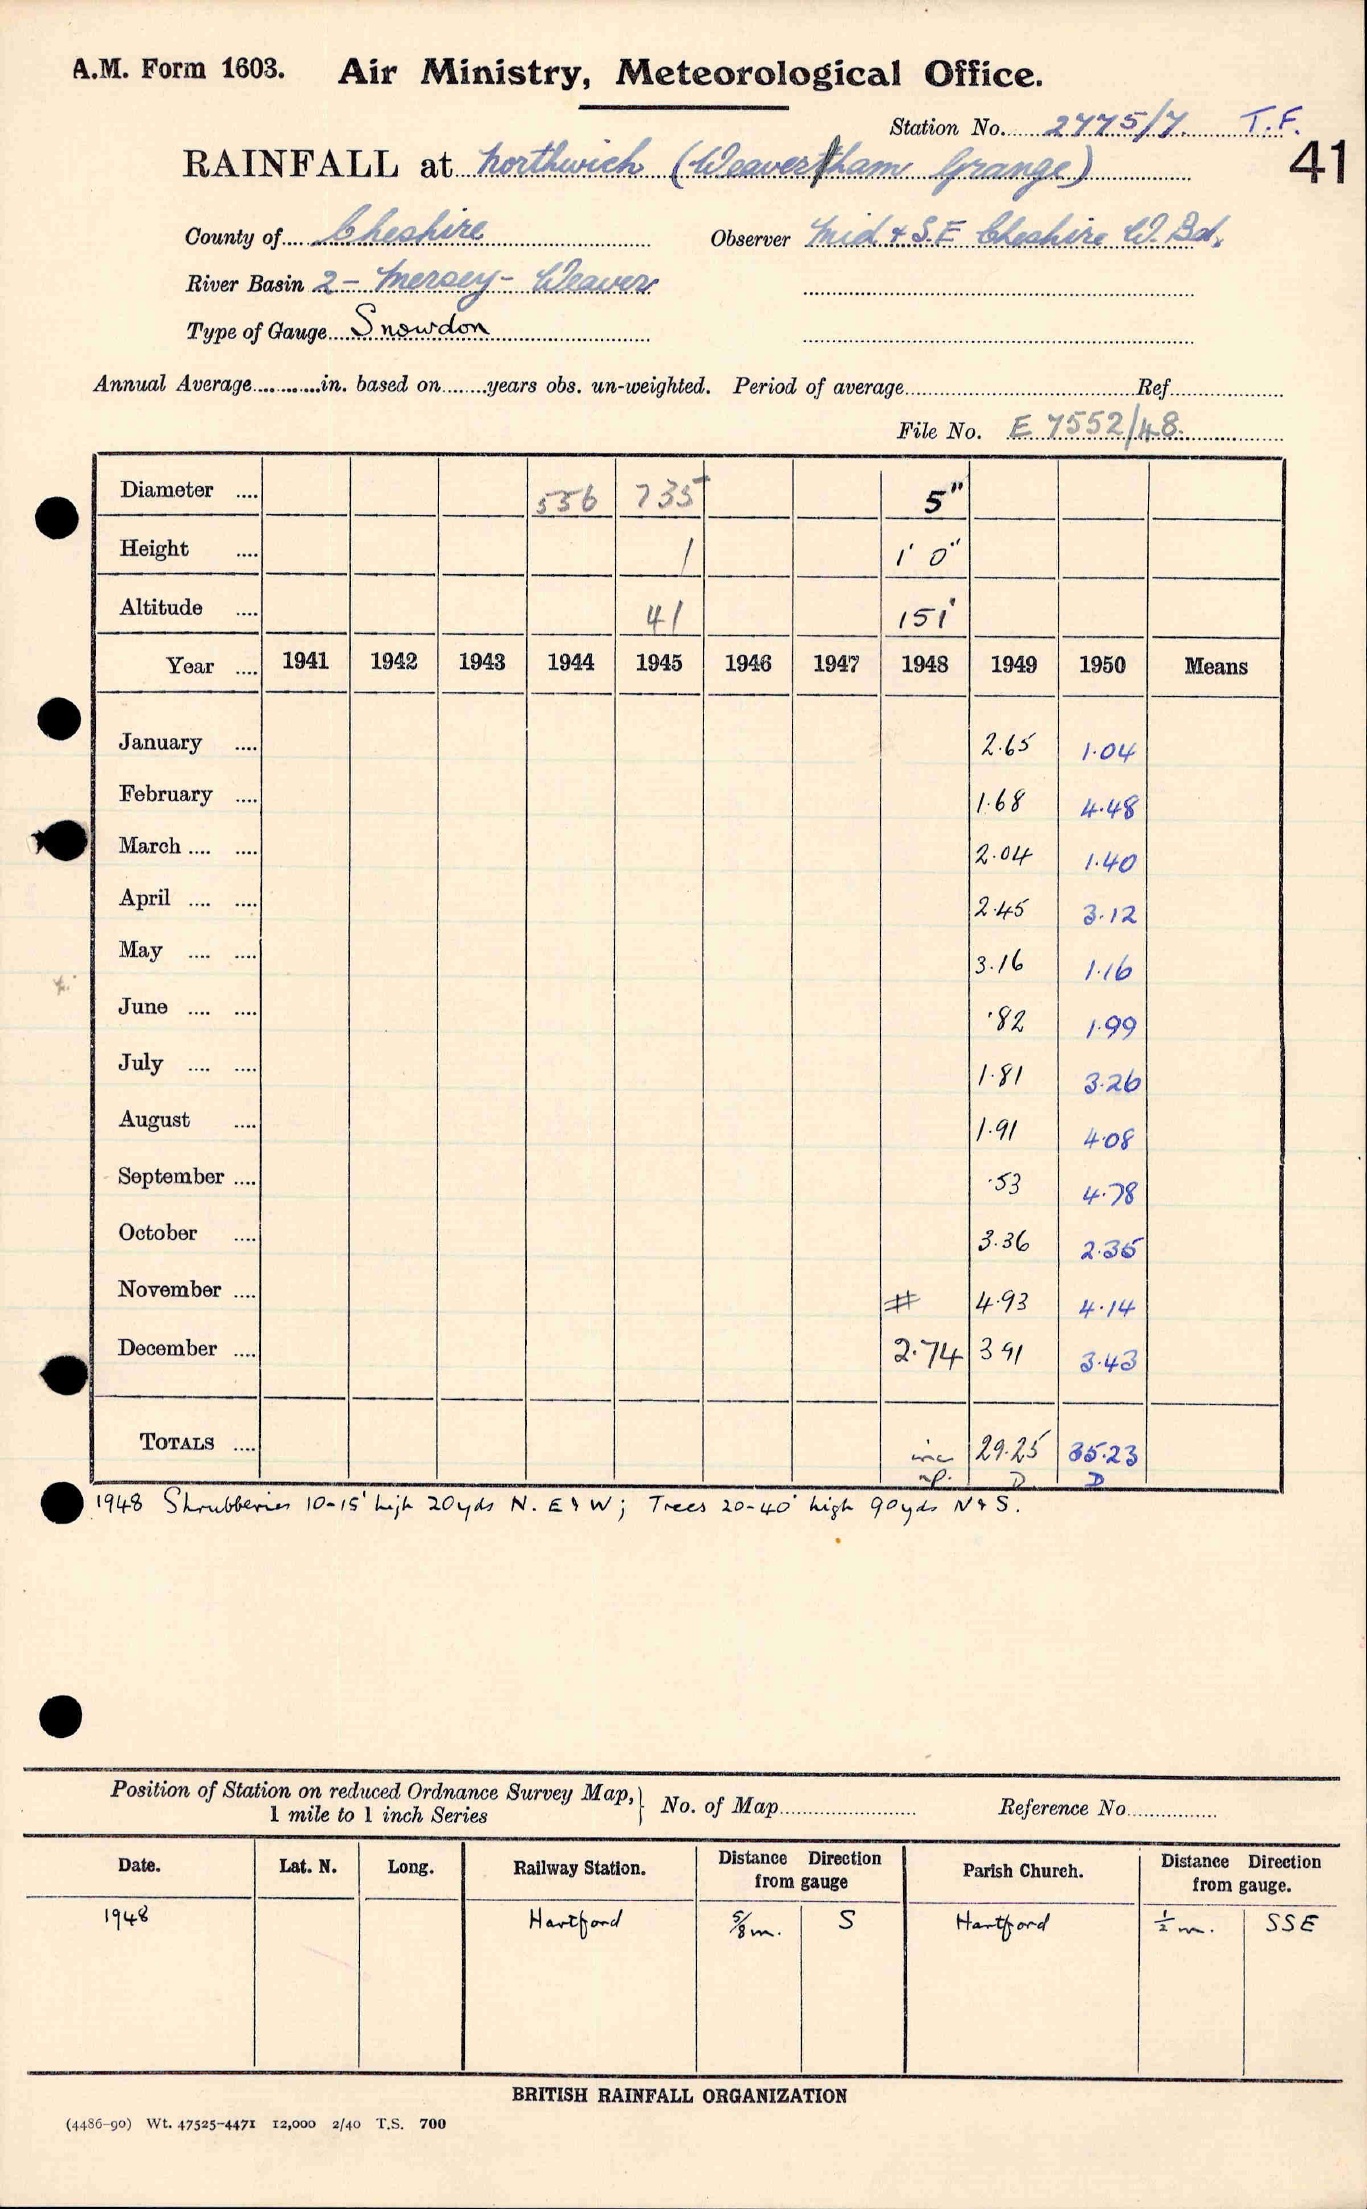 A.M. Form 1603. Air Ministry, Meteorological Office.
Station No. 2775/7. T.F.
41
RAINFALL at Northwich (Weaverham Grange)
County of Cheshire Observer Mid & S.E Cheshire W. Bd.
River Basin 2 - Mersey - Weaver
Type of Gauge Snowdon
Annual Average............in. based on.......years obs. un-weighted. Period of average Ref
File No. E 7552/48.
Diameter .... 556 735 5"
Height .... 1 1' 0"
Altitude .... 41 151'
Year .... 1941 1942 1943 1944 1945 1946 1947 1948 1949 1950 Means
January .... 2.65 1.04
February .... 1.68 4.48
March .... .... 2.04 1.40
April .... .... 2.45 3.12
May .... .... 3.16 1.16
June .... .... .82 1.99
July .... .... 1.81 3.26
August .... 1.91 4.08
September .... .53 4.78
October .... 3.36 2.35
November .... # 4.93 4.14
December .... 2.74 3 91 3.43
TOTALS .... inc 29.25 35.23
np. D. D
1948 Shrubberies 10-15' high 20yds N. E & W; Trees 20-40' high 90yds N & S.
Position of Station on reduced Ordnance Survey Map, } No. of Map Reference No
1 mile to 1 inch Series
Date. Lat. N. Long. Railway Station. Distance Direction from gauge Parish Church. Distance Direction from gauge.
1948 Hartford 5/8 m. S Hartford 1/2 m. SSE
BRITISH RAINFALL ORGANIZATION
(4486-90) Wt. 47525-4471 12,000 2/40 T.S. 700